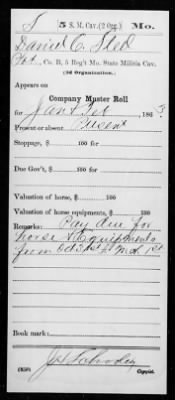 S 5 S. M. Cav. (2 Org.) Mo.
Daniel C. Sted
Pvt, Co. B, 5 Reg't Mo. State Militia Cav.
(2d Organization.)
Appears on
Company Muster Roll
for Jan & Feb, 1863
Present or absent Present
Stoppage, $ 100 for
Due Gov't, $ 100 for
Valuation of horse, $ 100
Valuation of horse equipments, $ 100
Remarks: Pay due for
horse & Equipments
from Oct 31st
Book mark:
(858) Copyist.